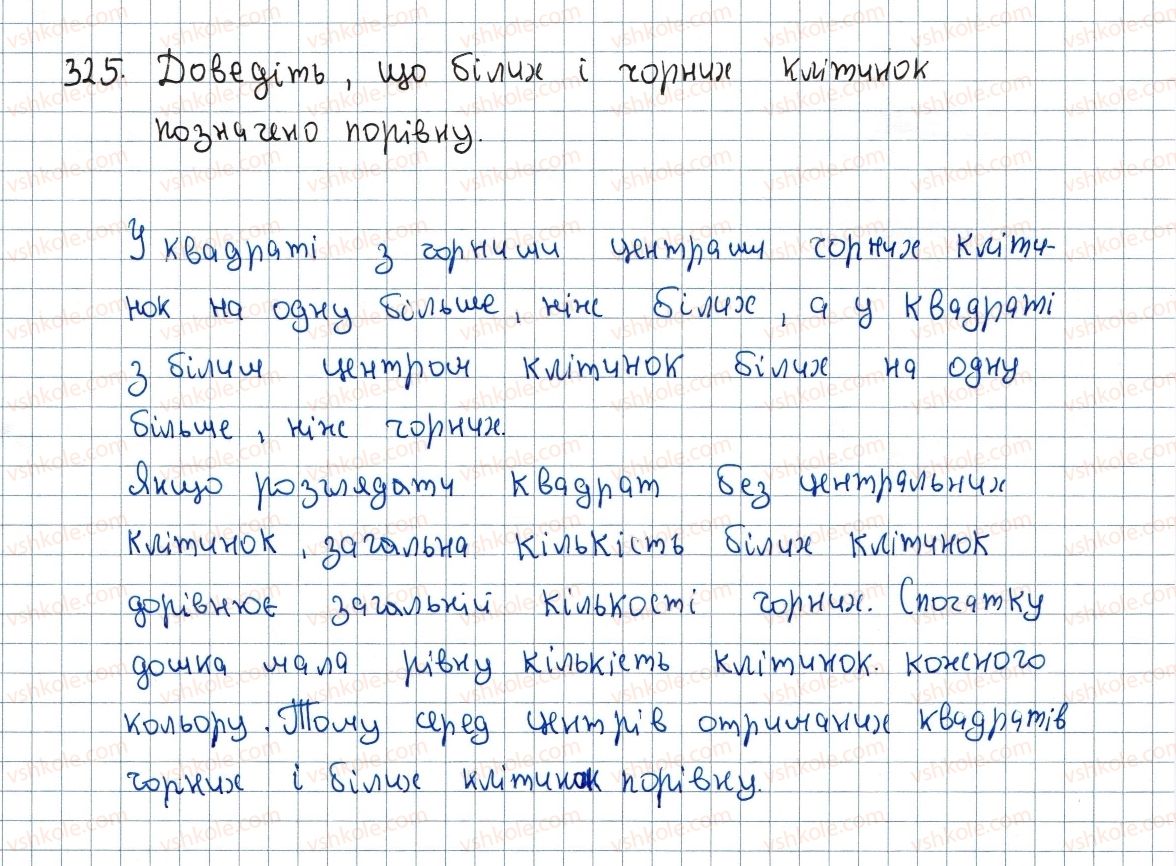 325. Доведіть, що білих і чорних клітинок
позначено порівну.
У квадраті з чорними центрами чорних кліти-
нок на одну більше, ніж білих, а у квадраті
з білим центром клітинок білих на одну
більше, ніж чорних.
Якщо розглядати квадрат без центральних
клітинок, загальна кількість білих клітинок
дорівнює загальній кількості чорних. Спочатку
дошка мала рівну кількість клітинок кожного
кольору. Тому серед центрів отриманих квадратів
чорних і білих клітинок порівну.